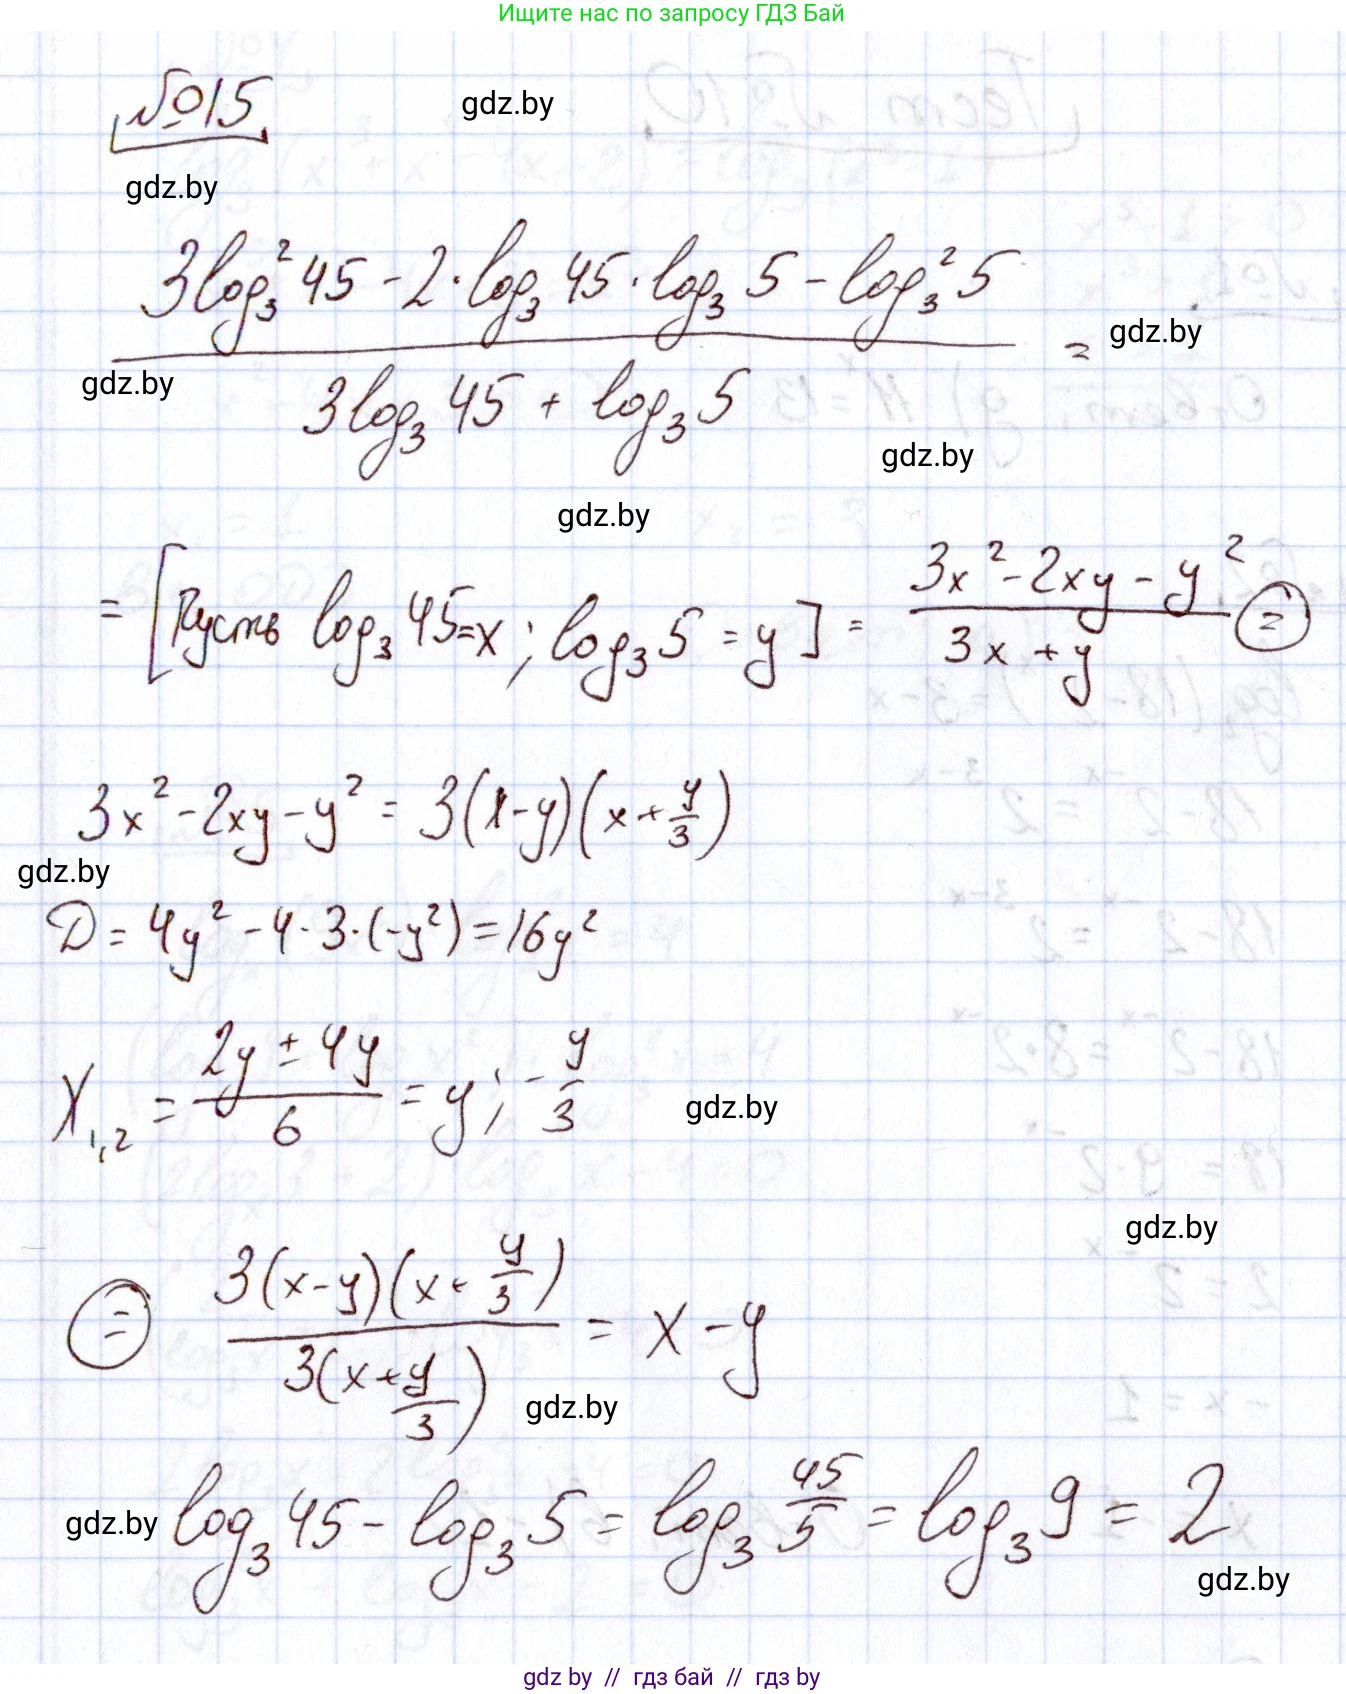 Ищите нас по запросу ГДЗ Бай
№015
gdz.by
gdz.by
3log₃²45 - 2·log₃45·log₃5 - log₃²5
=
gdz.by
gdz.by
3log₃45 + log₃5
gdz.by
gdz.by
= [Пусть log₃45=x; log₃5=y] = (3x²-2xy-y²)/(3x+y) =
3x²-2xy-y² = 3(x-y)(x+y/3)
gdz.by
D = 4y²-4·3·(-y²)=16y²
x₁,₂ = (2y±4y)/6 = y; -y/3
gdz.by
gdz.by
= 3(x-y)(x+y/3)/3(x+y/3) = x-y
gdz.by
gdz.by log₃45 - log₃5 = log₃45/5 = log₃9 = 2
gdz.by
gdz.by // гдз бай // гдз by